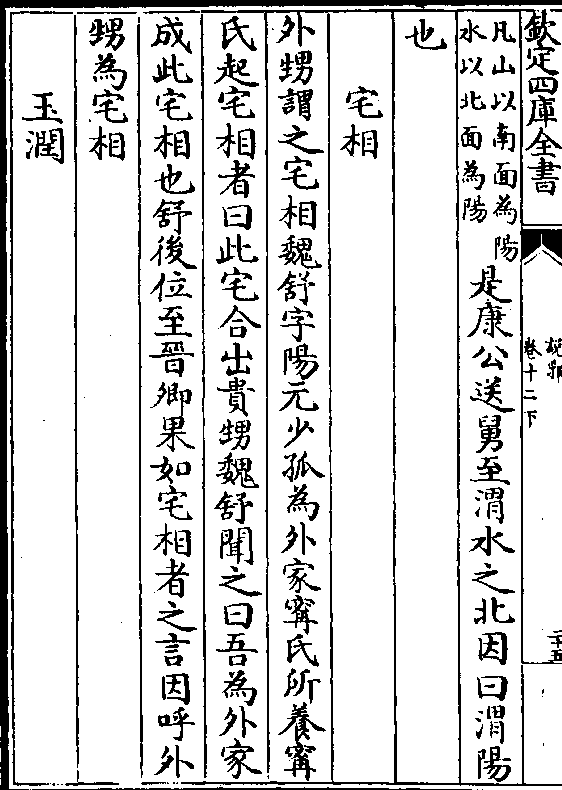 欽定四庫全書
卷十二下
凡山以南面為陽
水以北面為陽
是康公送舅至渭水之北因曰渭陽
也
宅相
外甥謂之宅相魏舒字陽元少孤為外家甯氏所養甯
氏起宅相者曰此宅合出貴甥魏舒聞之曰吾為外家
成此宅相也舒後位至晉卿果如宅相者之言因呼外
甥為宅相
玉潤